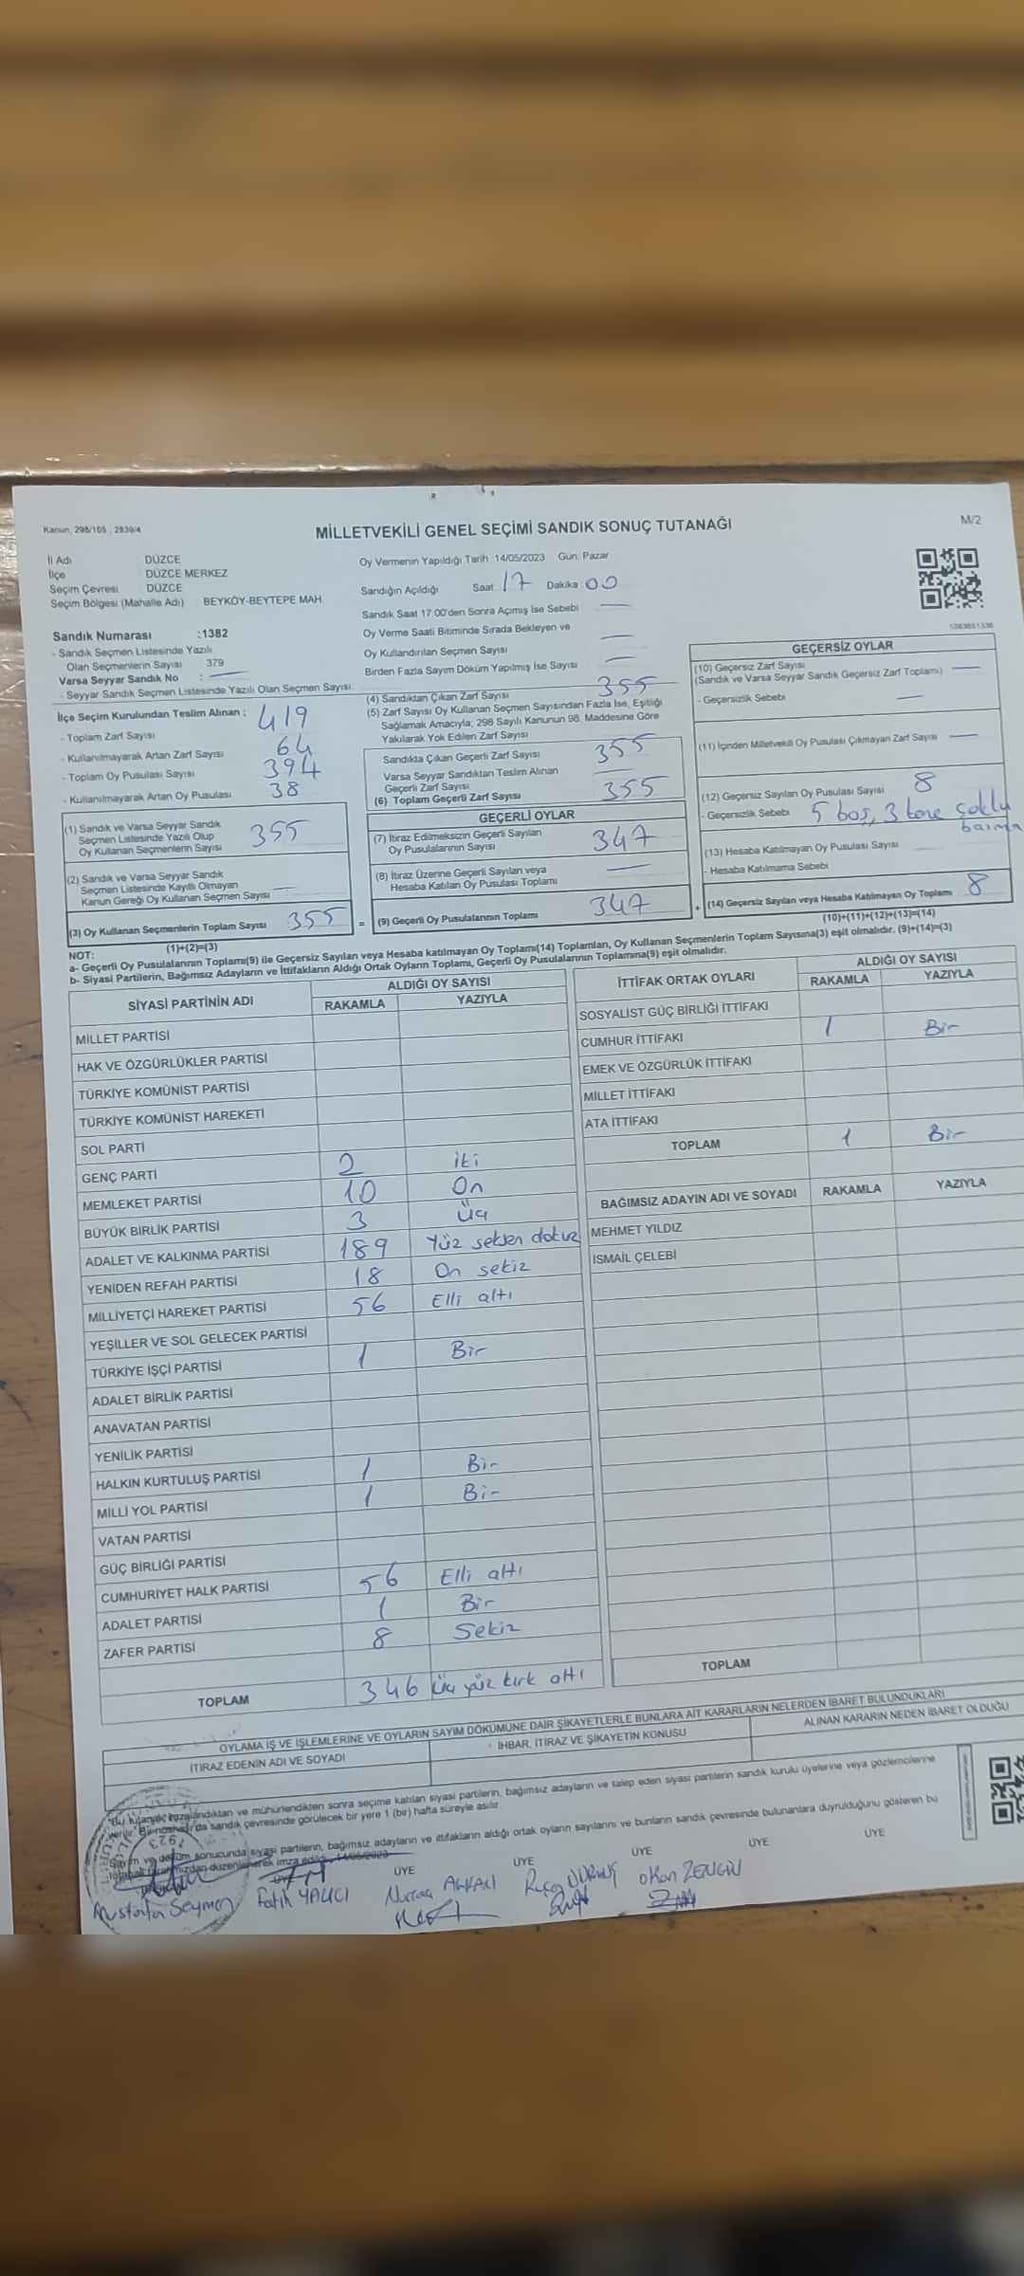 Kanun, 298/105 , 2839/4
MİLLETVEKİLİ GENEL SEÇİMİ SANDIK SONUÇ TUTANAĞI
M/2
İl Adı DÜZCE
İlçe DÜZCE MERKEZ
Seçim Çevresi DÜZCE
Seçim Bölgesi (Mahalle Adı) BEYKÖY-BEYTEPE MAH
Sandık Numarası :1382
- Sandık Seçmen Listesinde Yazılı
Olan Seçmenlerin Sayısı 379
Varsa Seyyar Sandık No : —
- Seyyar Sandık Seçmen Listesinde Yazılı Olan Seçmen Sayısı
İlçe Seçim Kurulundan Teslim Alınan :
- Toplam Zarf Sayısı 419
- Kullanılmayarak Artan Zarf Sayısı 64
- Toplam Oy Pusulası Sayısı 394
- Kullanılmayarak Artan Oy Pusulası 38
(1) Sandık ve Varsa Seyyar Sandık
Seçmen Listesinde Yazılı Olup
Oy Kullanan Seçmenlerin Sayısı 355
(2) Sandık ve Varsa Seyyar Sandık
Seçmen Listesinde Kayıtlı Olmayan
Kanun Gereği Oy Kullanan Seçmen Sayısı —
(3) Oy Kullanan Seçmenlerin Toplam Sayısı 355
(1)+(2)=(3)
Oy Vermenin Yapıldığı Tarih :14/05/2023 Gün: Pazar
Sandığın Açıldığı Saat 17 Dakika 00
Sandık Saat 17:00'den Sonra Açımış İse Sebebi —
Oy Verme Saati Bitiminde Sırada Bekleyen ve
Oy Kullandırılan Seçmen Sayısı —
Birden Fazla Sayım Döküm Yapılmış İse Sayısı —
(4) Sandıktan Çıkan Zarf Sayısı 355
(5) Zarf Sayısı Oy Kullanan Seçmen Sayısından Fazla İse, Eşitliği
Sağlamak Amacıyla; 298 Sayılı Kanunun 98. Maddesine Göre
Yakılarak Yok Edilen Zarf Sayısı
Sandıkta Çıkan Geçerli Zarf Sayısı 355
Varsa Seyyar Sandıktan Teslim Alınan
Geçerli Zarf Sayısı —
(6) Toplam Geçerli Zarf Sayısı 355
GEÇERLİ OYLAR
(7) İtiraz Edilmeksizin Geçerli Sayılan
Oy Pusulalarının Sayısı 347
(8) İtiraz Üzerine Geçerli Sayılan veya
Hesaba Katılan Oy Pusulası Toplamı —
= (9) Geçerli Oy Pusulalarının Toplamı 347 +
GEÇERSİZ OYLAR
(10) Geçersiz Zarf Sayısı
(Sandık ve Varsa Seyyar Sandık Geçersiz Zarf Toplamı) —
- Geçersizlik Sebebi —
(11) İçinden Milletvekili Oy Pusulası Çıkmayan Zarf Sayısı —
(12) Geçersiz Sayılan Oy Pusulası Sayısı 8
- Geçersizlik Sebebi 5 boş, 3 tane çoklu
(13) Hesaba Katılmayan Oy Pusulası Sayısı
- Hesaba Katılmama Sebebi
(14) Geçersiz Sayılan veya Hesaba Katılmayan Oy Toplamı 8
(10)+(11)+(12)+(13)=(14)
NOT:
a- Geçerli Oy Pusulalarının Toplamı(9) ile Geçersiz Sayılan veya Hesaba katılmayan Oy Toplamı(14) Toplamları, Oy Kullanan Seçmenlerin Toplam Sayısına(3) eşit olmalıdır. (9)+(14)=(3)
b- Siyasi Partilerin, Bağımsız Adayların ve İttifakların Aldığı Ortak Oyların Toplamı, Geçerli Oy Pusulalarının Toplamına(9) eşit olmalıdır.
SİYASİ PARTİNİN ADI ALDIĞI OY SAYISI
RAKAMLA YAZIYLA
MİLLET PARTİSİ
HAK VE ÖZGÜRLÜKLER PARTİSİ
TÜRKİYE KOMÜNİST PARTİSİ
TÜRKİYE KOMÜNİST HAREKETİ
SOL PARTİ
GENÇ PARTİ 2 iki
MEMLEKET PARTİSİ 10 On
BÜYÜK BİRLİK PARTİSİ 3 üç
ADALET VE KALKINMA PARTİSİ 189 Yüz seksen dokuz
YENİDEN REFAH PARTİSİ 18 On sekiz
MİLLİYETÇİ HAREKET PARTİSİ 56 Elli altı
YEŞİLLER VE SOL GELECEK PARTİSİ
TÜRKİYE İŞÇİ PARTİSİ 1 Bir
ADALET BİRLİK PARTİSİ
ANAVATAN PARTİSİ
YENİLİK PARTİSİ
HALKIN KURTULUŞ PARTİSİ 1 Bir
MİLLİ YOL PARTİSİ 1 Bir
VATAN PARTİSİ
GÜÇ BİRLİĞİ PARTİSİ
CUMHURİYET HALK PARTİSİ 56 Elli altı
ADALET PARTİSİ 1 Bir
ZAFER PARTİSİ 8 Sekiz
TOPLAM 346 üç yüz kırk altı
İTTİFAK ORTAK OYLARI ALDIĞI OY SAYISI
RAKAMLA YAZIYLA
SOSYALİST GÜÇ BİRLİĞİ İTTİFAKI
CUMHUR İTTİFAKI 1 Bir
EMEK VE ÖZGÜRLÜK İTTİFAKI
MİLLET İTTİFAKI
ATA İTTİFAKI
TOPLAM 1 Bir
BAĞIMSIZ ADAYIN ADI VE SOYADI RAKAMLA YAZIYLA
MEHMET YILDIZ
İSMAİL ÇELEBİ
TOPLAM
OYLAMA İŞ VE İŞLEMLERİNE VE OYLARIN SAYIM DÖKÜMÜNE DAİR ŞİKAYETLERLE BUNLARA AİT KARARLARIN NELERDEN İBARET BULUNDUKLARI
İTİRAZ EDENİN ADI VE SOYADI İHBAR, İTİRAZ VE ŞİKAYETİN KONUSU ALINAN KARARIN NEDEN İBARET OLDUĞU
Bu tutanak imzalandıktan ve mühürlendikten sonra seçime katılan siyasi partilerin, bağımsız adayların ve talep eden siyasi partilerin sandık kurulu üyelerine veya gözlemcilerine
verilir. da sandık çevresinde görülecek bir yere 1 (bir) hafta süreyle asılır.
Sayım ve döküm sonucunda siyasi partilerin, bağımsız adayların ve ittifakların aldığı ortak oyların sayılarını ve bunların sandık çevresinde bulunanlara duyrulduğunu gösteren bu
düzenlenerek imza edildi.
1923
ÜYE ÜYE ÜYE ÜYE ÜYE ÜYE
Mustafa Seymen Fatih YALICI Recep DURMUŞ Okan ZENGİN